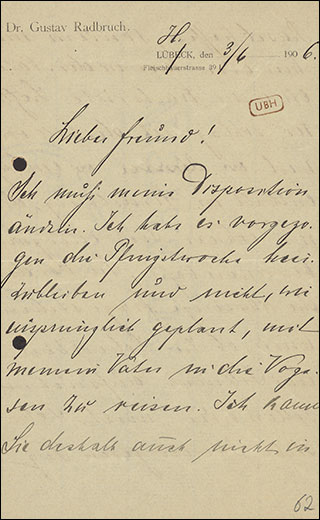 Dr. Gustav Radbruch.
H.
LÜBECK, den 3/6 1906.
Fleischhauerstrasse 39 I
UBH
Lieber Freund!
Ich muß meine Disposition
ändern. Ich habe es vorgezo-
gen die Pfingstwoche hier
zubleiben und nicht, wie
ursprünglich geplant, mit
meinem Vater in die Voge-
sen zu reisen. Ich kann
Sie deshalb auch nicht in
62